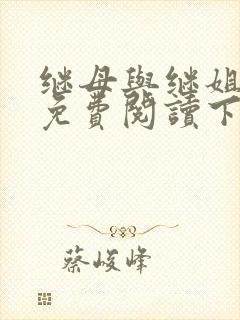 继母與继姐
免費閱讀下
蔡峻峰